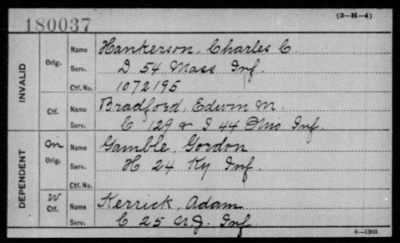 180037
(3—H—4)
INVALID
Orig.
Name Hankerson, Charles C.
Serv. D 54 Mass Inf.
Ctf. No. 1072195
Ctf.
Name Bradford, Edwin M.
Serv. C 129 & I 44 Ohio Inf.
DEPENDENT
Orig.
Name Gamble, Gordon
Serv. H 24 Ky Inf.
W
Ctf.
Name Kerrick, Adam
Serv. C 25 N.J. Inf.